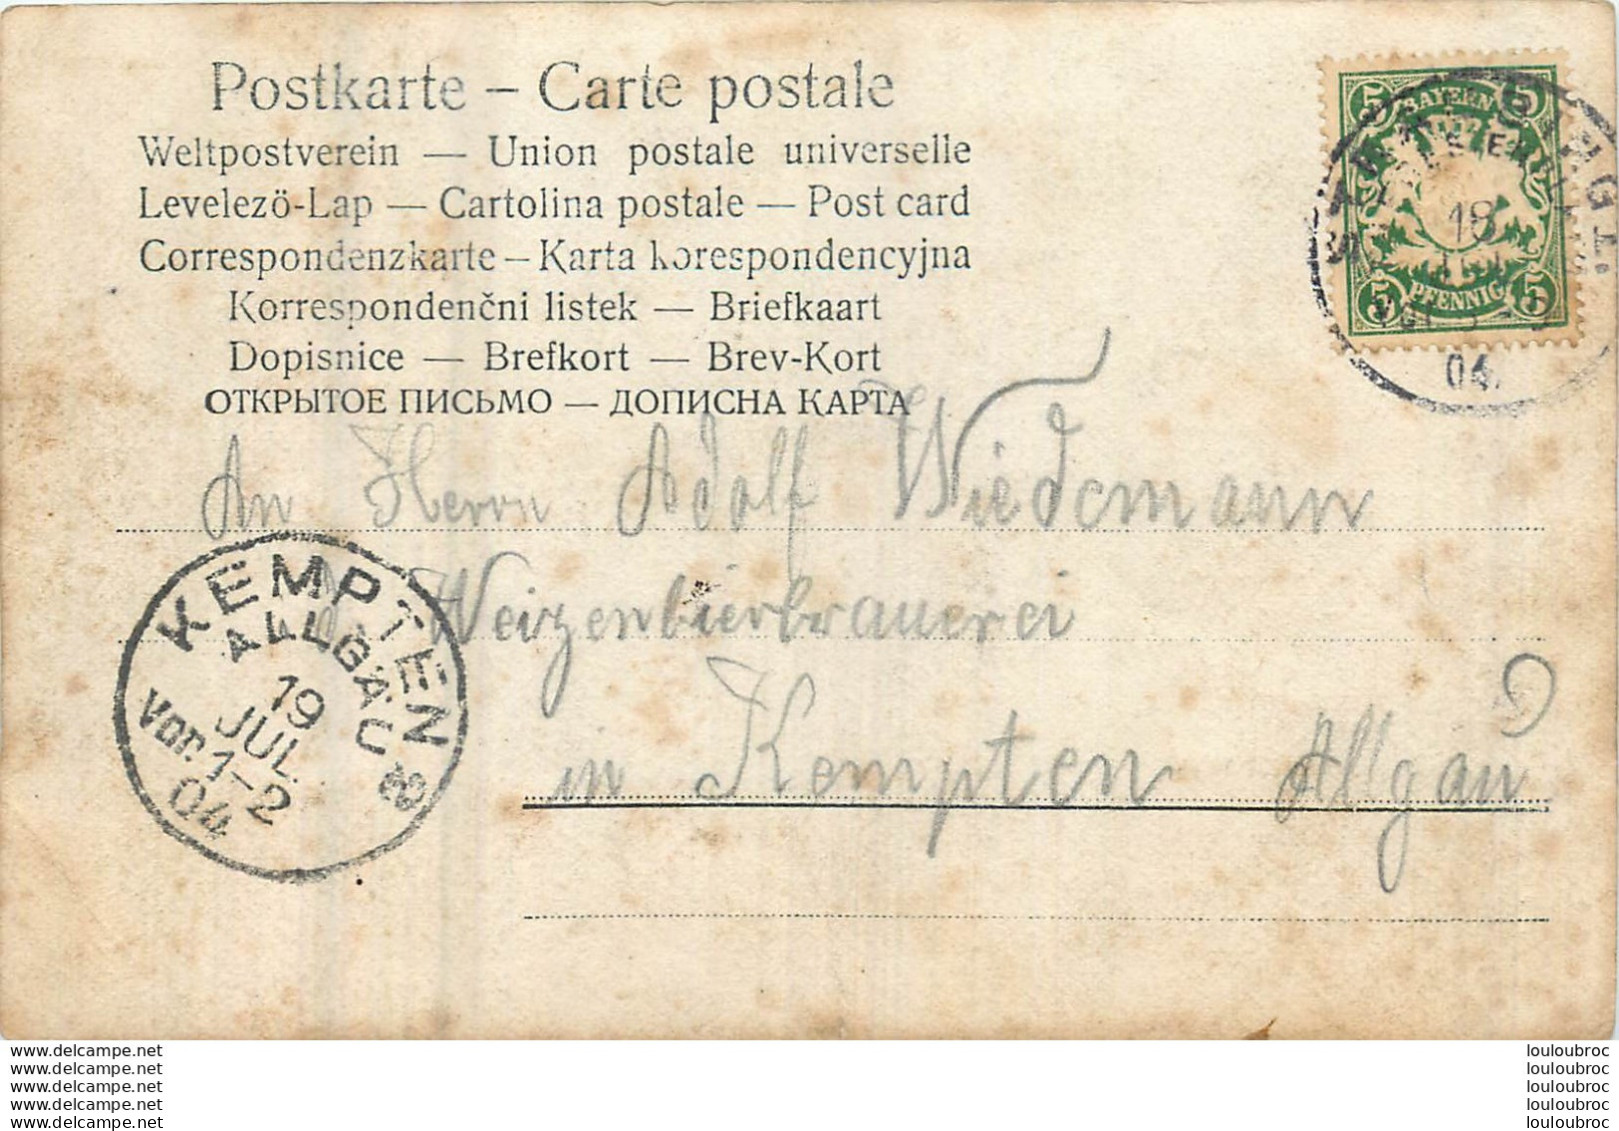 Postkarte – Carte postale
Weltpostverein — Union postale universelle
Levelezö-Lap — Cartolina postale — Post card
Correspondenzkarte – Karta korespondencyjna
Korrespondenčni listek — Briefkaart
Dopisnice — Brefkort — Brev-Kort
ОТКРЫТОЕ ПИСЬМО — ДОПИСНА КАРТА
5 BAYERN 5
5 PFENNIG 5
18
04.
An Herrn Adolf Wiedemann
Weizenbierbrauerei
in Kempten Allgäu
KEMPTEN
ALLGÄU
19
JUL.
Vor. 1-2
04
www.delcampe.net
www.delcampe.net
www.delcampe.net
www.delcampe.net
www.delcampe.net
louloubroc
louloubroc
louloubroc
louloubroc
louloubroc